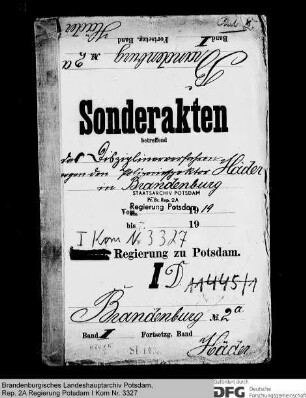 Häder
Brandenburg № 2a
Fortsetzg. Band
Band I
Sonderakten
betreffend
das Disziplinarverfahren
gegen den Polizeiinspektor Häder
in Brandenburg
STAATSARCHIV POTSDAM
Pr. Br. Rep. 2A
Regierung Potsdam
Vom 1919
bis 19
I Kom Nr. 3327
Regierung zu Potsdam.
I D
Brandenburg № 2a
Band I Fortsetzg. Band
Häder
Brandenburgisches Landeshauptarchiv Potsdam,
Rep. 2A Regierung Potsdam I Kom Nr. 3327
Gefördert durch
DFG Deutsche
Forschungsgemeinschaft